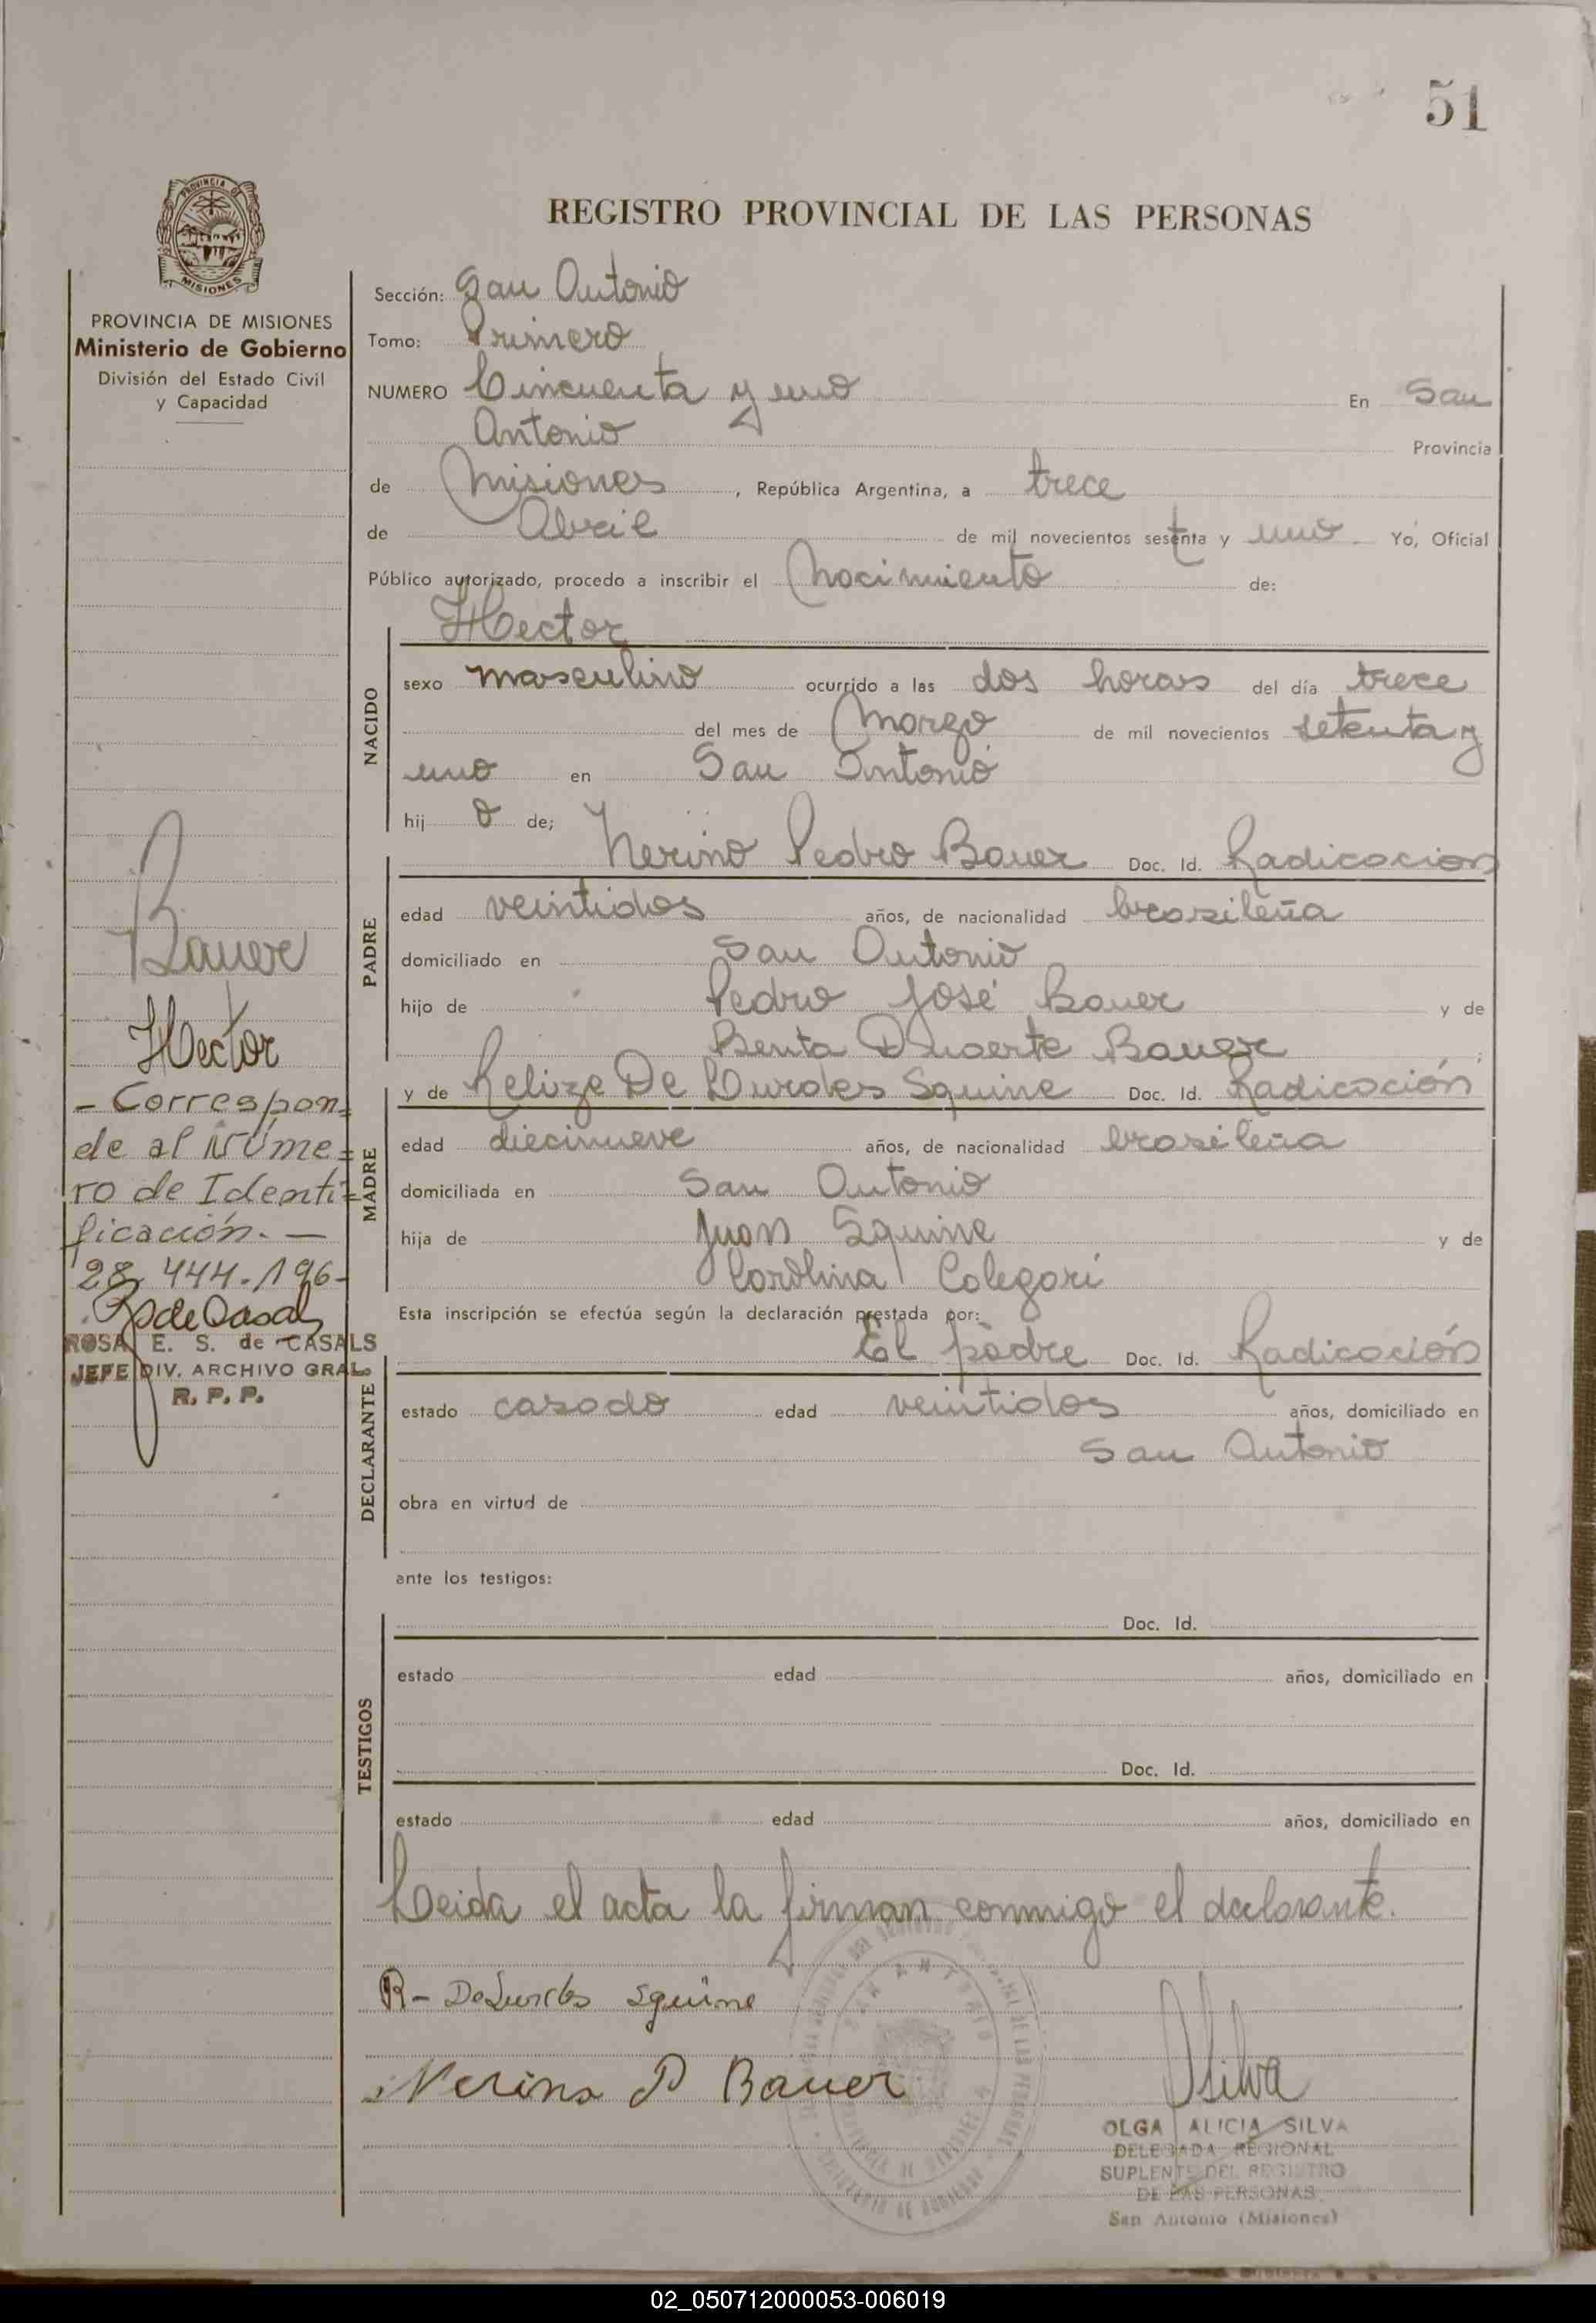 51
REGISTRO PROVINCIAL DE LAS PERSONAS
PROVINCIA DE MISIONES
Ministerio de Gobierno
División del Estado Civil
y Capacidad
Sección: San Antonio
Tomo: Primero
NUMERO Cincuenta y uno En San
Antonio Provincia
de Misiones, República Argentina, a trece
de Abril de mil novecientos setenta y uno Yo, Oficial
Público autorizado, procedo a inscribir el Nacimiento de:
Hector
NACIDO
sexo masculino ocurrido a las dos horas del día trece
del mes de Marzo de mil novecientos setenta y
uno en San Antonio
hij o de; Nerino Pedro Bauer Doc. Id. Radicacion
PADRE
edad veintidos años, de nacionalidad brasileña
domiciliado en San Antonio
hijo de Pedro José Bauer y de
Benta Duarte Bauer;
y de De Lurdes Squine Doc. Id. Radicación
MADRE
edad diecinueve años, de nacionalidad brasileña
domiciliada en San Antonio
hija de Juan Squine y de
Carolina Colegari
Esta inscripción se efectúa según la declaración prestada por:
El padre Doc. Id. Radicación
DECLARANTE
estado casado edad veintidos años, domiciliado en
San Antonio
obra en virtud de
ante los testigos:
Doc. Id.
TESTIGOS
estado edad años, domiciliado en
Doc. Id.
estado edad años, domiciliado en
Leida el acta la firman conmigo el declarante.
R- De Lurdes Squine
Nerino P Bauer
Silva
OLGA ALICIA SILVA
DELEGADA REGIONAL
SUPLENTE DEL REGISTRO
DE LAS PERSONAS
San Antonio (Misiones)
Bauer
Hector
- Correspon=
de al Núme=
ro de Identi=
ficación. -
28.444.196-
R S de Casals
ROSA E. S. de CASALS
JEFE DIV. ARCHIVO GRAL.
R. P. P.
02_050712000053-006019